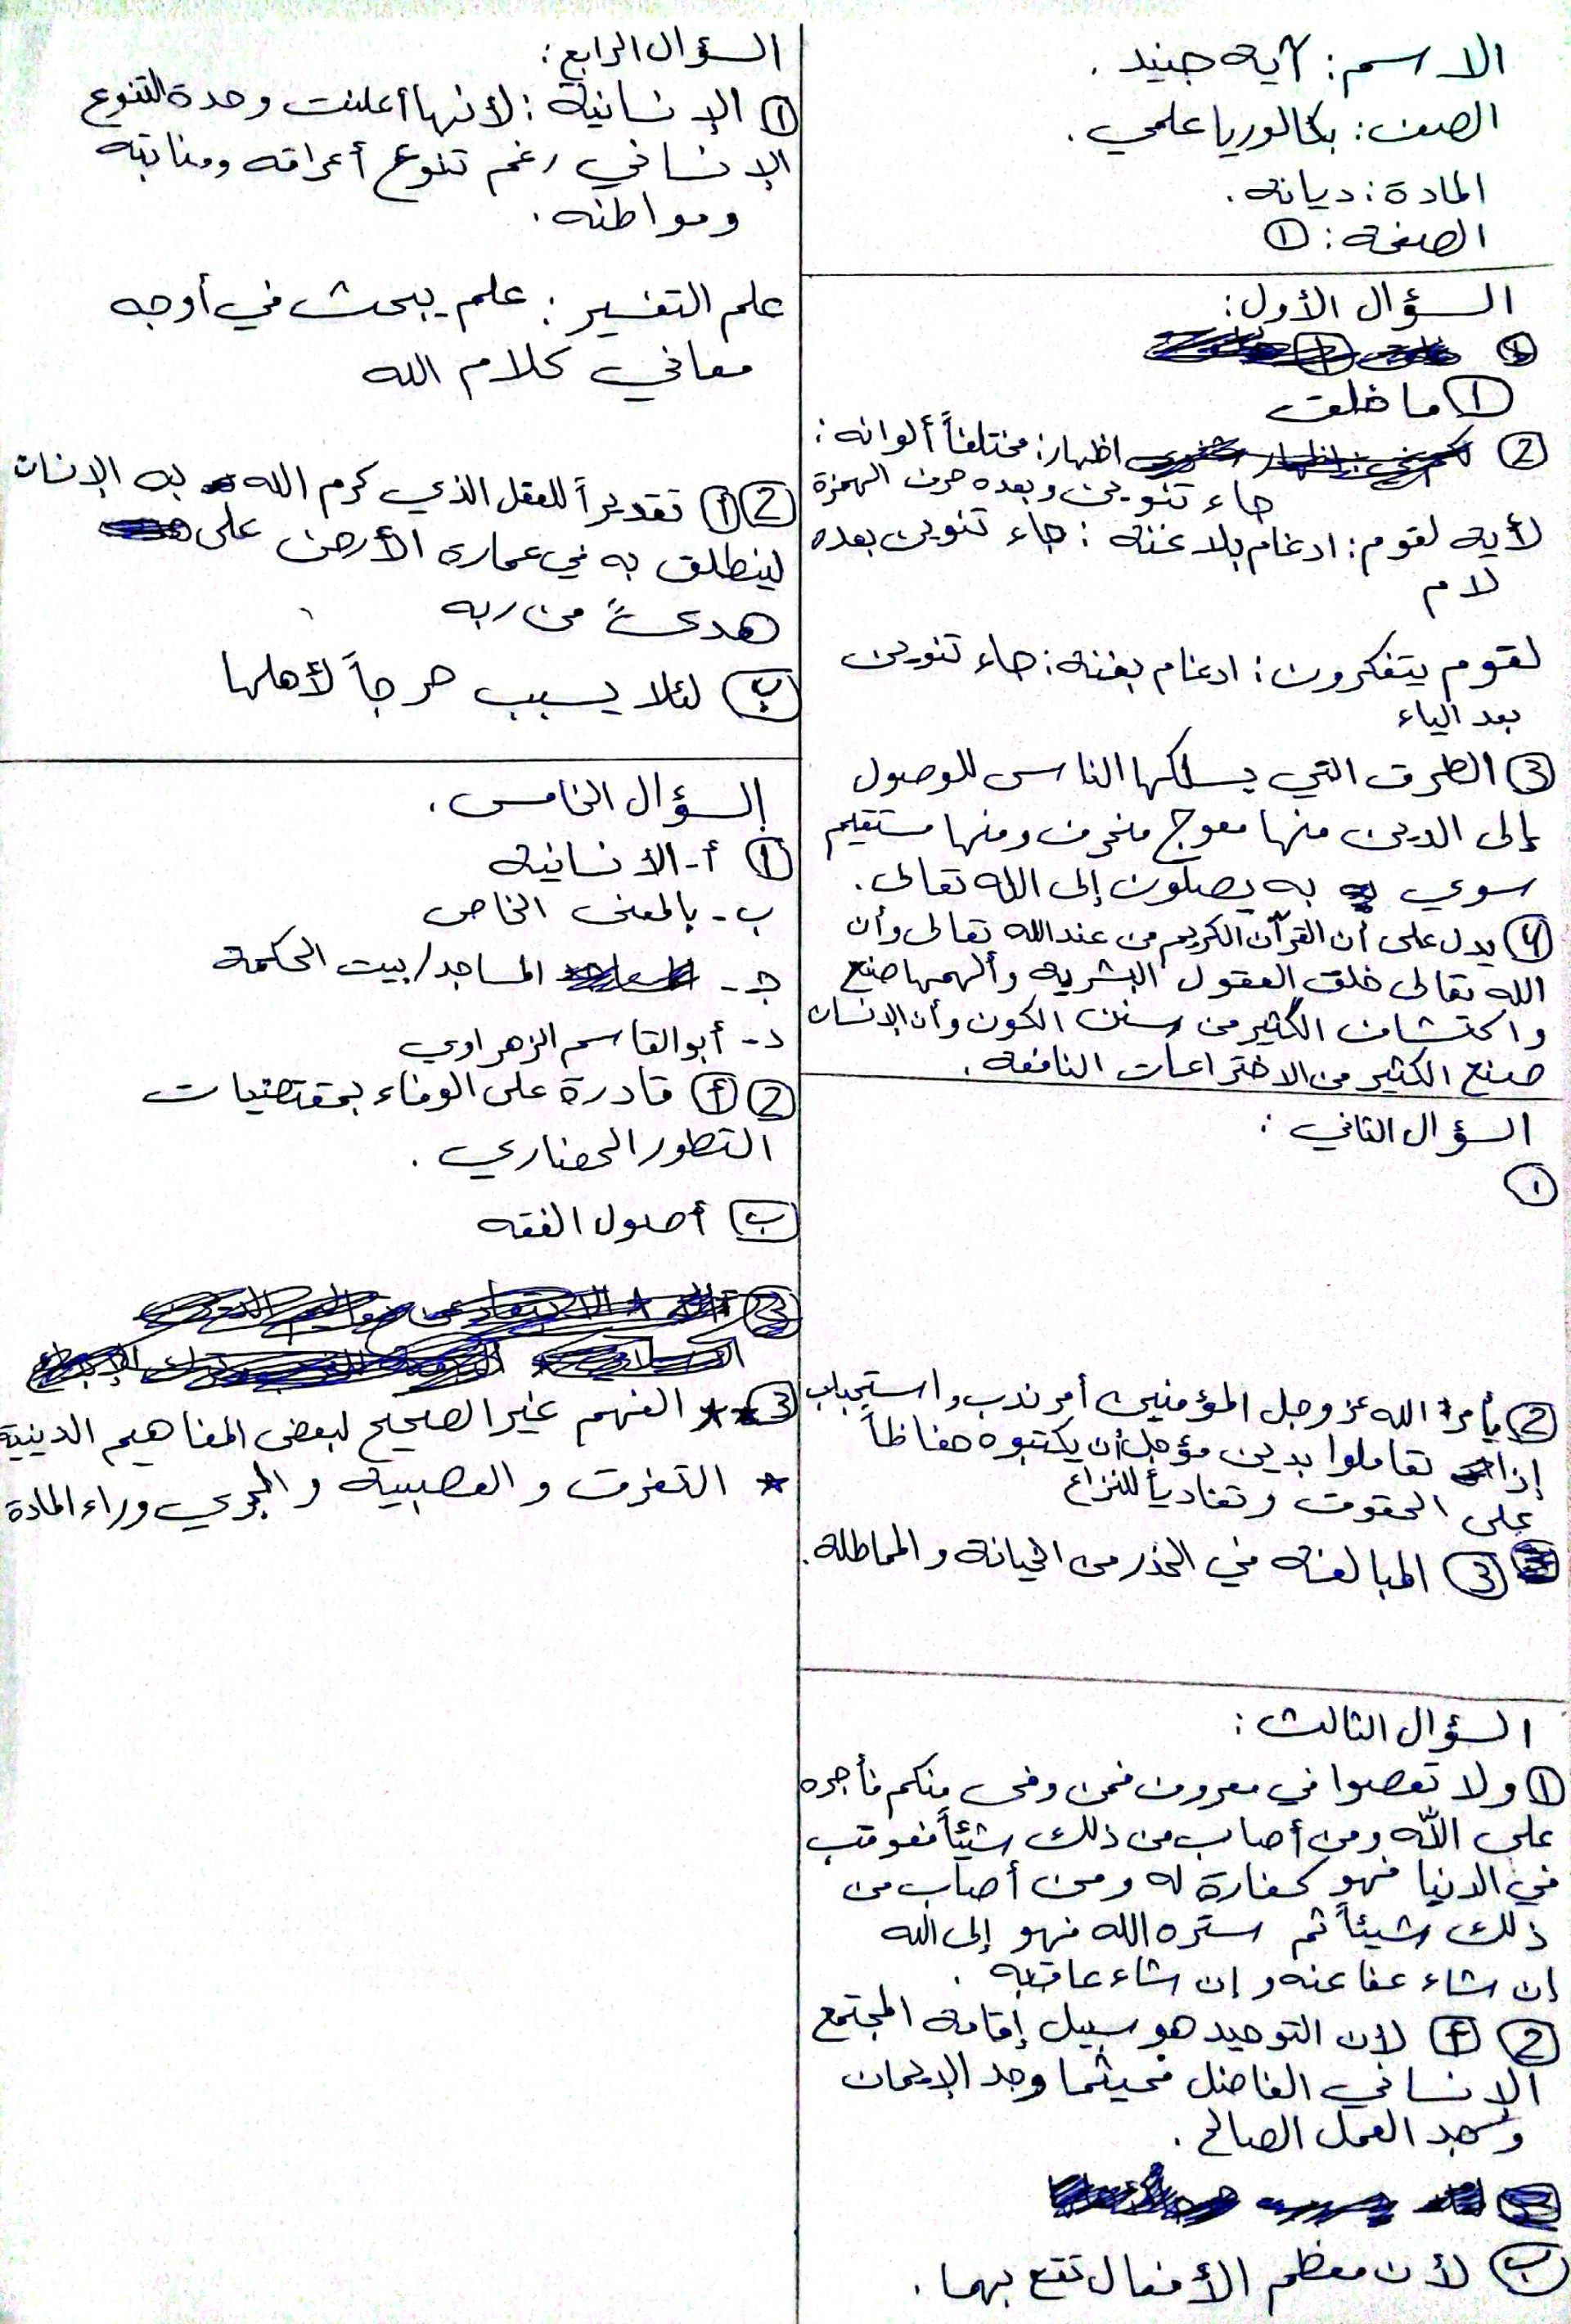 الاسم: آية جنيد.
الصف: بكالوريا علمي.
المادة: ديانة.
الصفحة: ①
السؤال الأول:
① ما خلق
② اظهار: مختلفاً ألوانه:
جاء تنوين وبعده حرف الهمزة
لأية لقوم: ادغام بلا غنة: جاء تنوين بعده
لام
لقوم يتفكرون: ادغام بغنة: جاء تنوين
بعد الياء
③ الطرق التي يسلكها الناس للوصول
إلى الدين منها معوج منحرف ومنها مستقيم
سوي به يصلون إلى الله تعالى.
④ يدل على أن القرآن الكريم من عند الله تعالى وأن
الله تعالى خلق العقول البشرية وألهمها صنع
واكتشاف الكثير من سنن الكون وأن الإنسان
صنع الكثير من الاختراعات النافعة.
السؤال الثاني:
①
② يأمر الله عز وجل المؤمنين أمر ندب واستحباب
إذا تعاملوا بدين مؤجل أن يكتبوه حفاظاً
على الحقوق وتفادياً للنزاع
③ المبالغة في الحذر من الخيانة والمماطلة.
السؤال الثالث:
① ولا تعصوا في معروف فمن وفى منكم فأجره
على الله ومن أصاب من ذلك شيئاً فعوقب
في الدنيا فهو كفارة له ومن أصاب من
ذلك شيئاً ثم ستره الله فهو إلى الله
إن شاء عفا عنه وإن شاء عاقبه.
② أ لأن التوحيد هو سبيل إقامة المجتمع
الإنساني الفاضل فحيثما وجد الإيمان
وجد العمل الصالح.
ب لأن معظم الأفعال تقع بهما.
السؤال الرابع:
① الإنسانية: لأنها أعلنت وحدة التنوع
الإنساني رغم تنوع أعراقه ومنابته
ومواطنه.
علم التفسير: علم يبحث في أوجه
معاني كلام الله
② أ تقديراً للعقل الذي كرم الله به الإنسان
لينطلق به في عمارة الأرض على
هدىً من ربه
ب لئلا يسبب حرجاً لأهلها
السؤال الخامس.
① أ- الانسانية
ب- بالمعنى الخاص
جـ- المساجد/بيت الحكمة
د- أبو القاسم الزهراوي
② أ قادرة على الوفاء بمقتضيات
التطور الحضاري.
ب أصول الفقه
③ * الفهم غير الصحيح لبعض المفاهيم الدينية
* التفرق والعصبية والجري وراء المادة